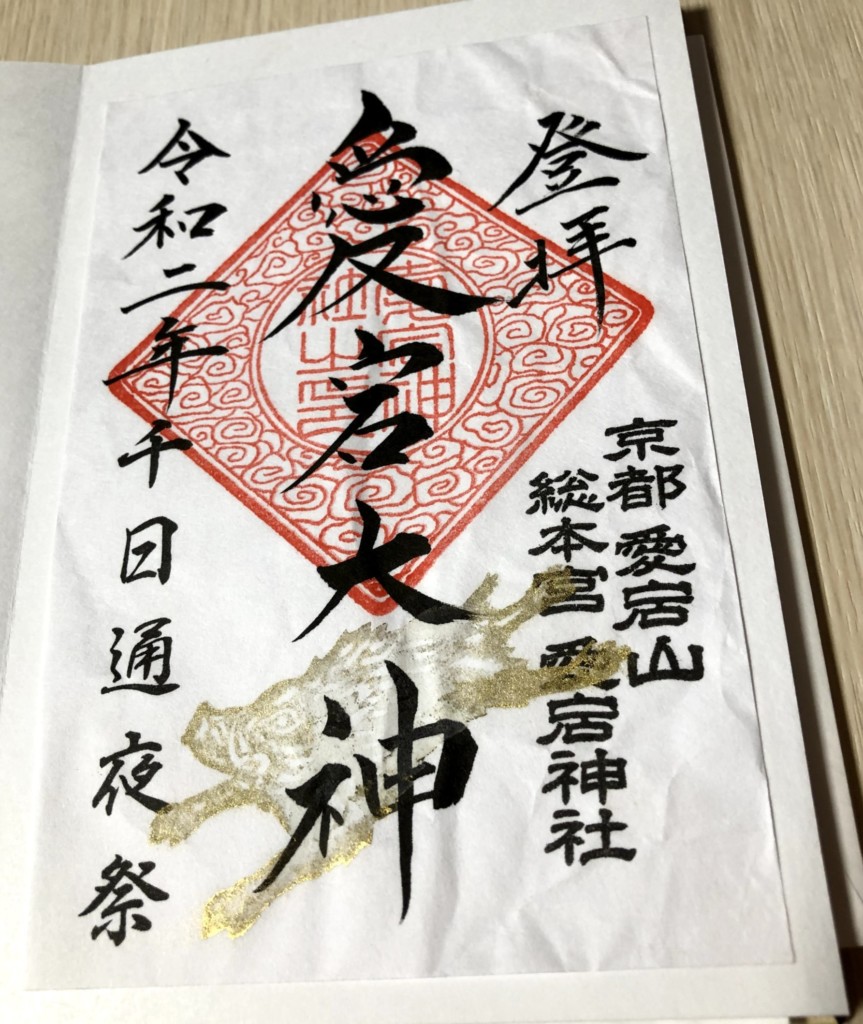 登拝
京都愛宕山
総本宮 愛宕神社
愛宕大神
令和二年千日通夜祭